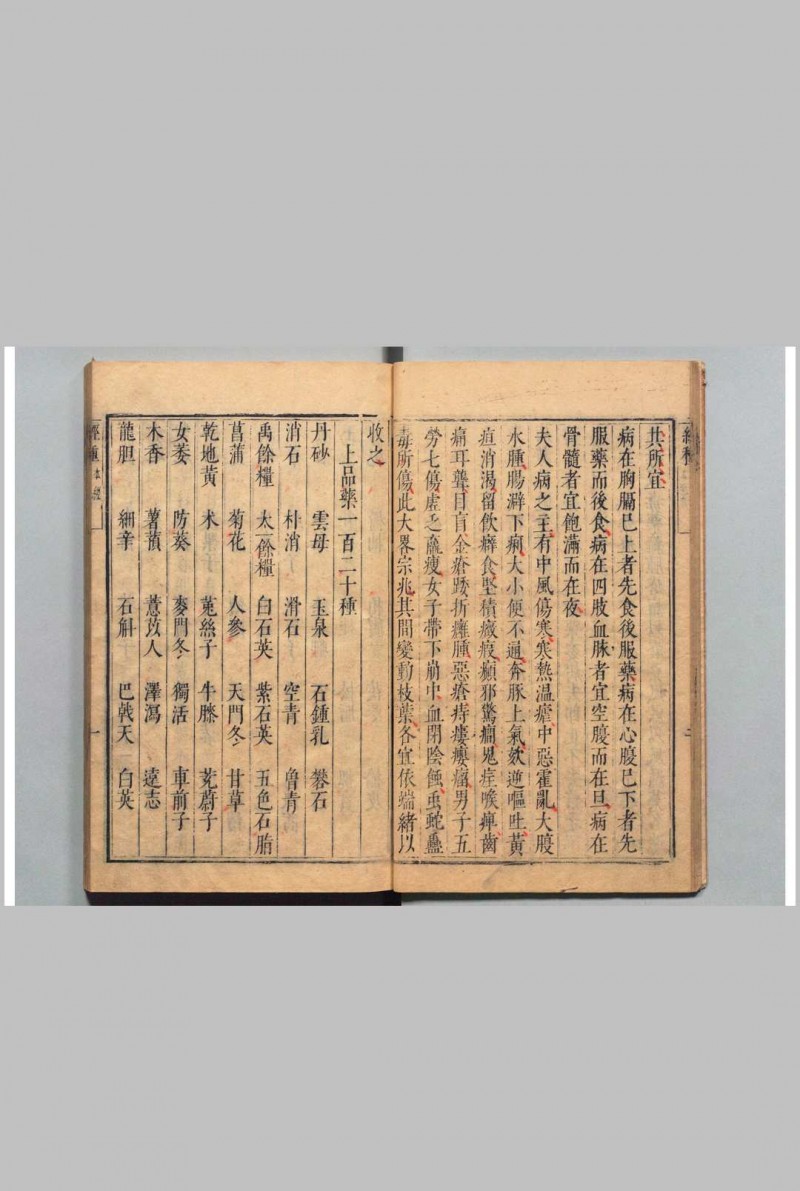 其所宜
病在胸膈已上者先食後服藥病在心腹已下者先
服藥而後食病在四肢血脉者宜空腹而在旦病在
骨髓者宜飽滿而在夜
夫大病之主有中風傷寒寒熱溫瘧中惡霍亂大腹
水腫腸澼下痢大小便不通奔豚上氣欬逆嘔吐黃
疸消渴留飲癖食堅積癥瘕癲邪驚癇鬼疰喉痺齒
痛耳聾目盲金瘡踒折癰腫惡瘡痔瘻癭瘤男子五
勞七傷虛乏羸瘦女子帶下崩中血閉陰蝕虫蛇蠱
毒所傷此大畧宗兆其間變動枝葉各宜依端緒以
收之
上品藥一百二十種
丹砂 雲母 玉泉 石鍾乳 礬石
消石 朴消 滑石 空青 曾青
禹餘糧 太一餘糧 白石英 紫石英 五色石脂
菖蒲 菊花 人參 天門冬 甘草
乾地黃 朮 菟絲子 牛膝 茺蔚子
女萎 防葵 麥門冬 獨活 車前子
木香 薯蕷 薏苡人 澤瀉 遠志
龍胆 細辛 石斛 巴戟天 白英